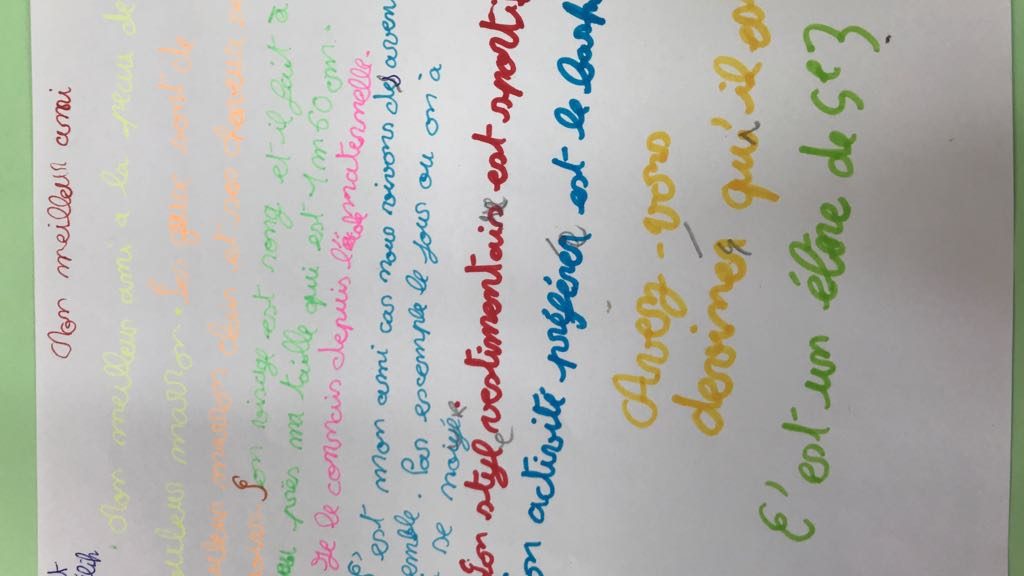 Mon meilleur ami
Mon meilleur ami a la peau de
ouleur marron. Ses yeux sont de
marron clair et ses cheveux
Son visage est rong et il fait à
près ma taille qui est 1m60cm.
Je le connais depuis la maternelle.
est mon ami car nous vivons des aven
emble. Par escemple le jour ou on à
se
Son style vestimentaire est sporti
on activité préférér est le bask
Avez-vous
deviner qui il es
C'est un élève de 5e3